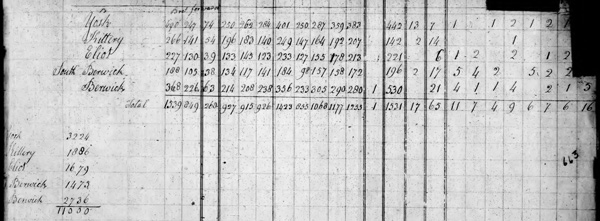 Brot forward
York 13 7 1 1 2 1 2 1
Kittery 266 141 54 196 183 140 249 147 164 192 207 142 2 14 1
Eliot 227 130 39 133 143 123 233 127 133 178 213 221 6 1 2 2 1 2
South Berwick 188 105 38 134 117 141 184 98 157 138 172 196 2 17 5 4 2 5 2 2
Berwick 368 226 63 214 208 238 356 233 305 290 280 1 530 21 4 1 1 4 2 1 5
Total 1339 849 268 927 915 926 1423 855 1068 1177 1255 1 1531 17 65 11 7 4 9 6 7 6 16
York 3224
Kittery 1886
Eliot 1679
Berwick 1473
Berwick 2736
663